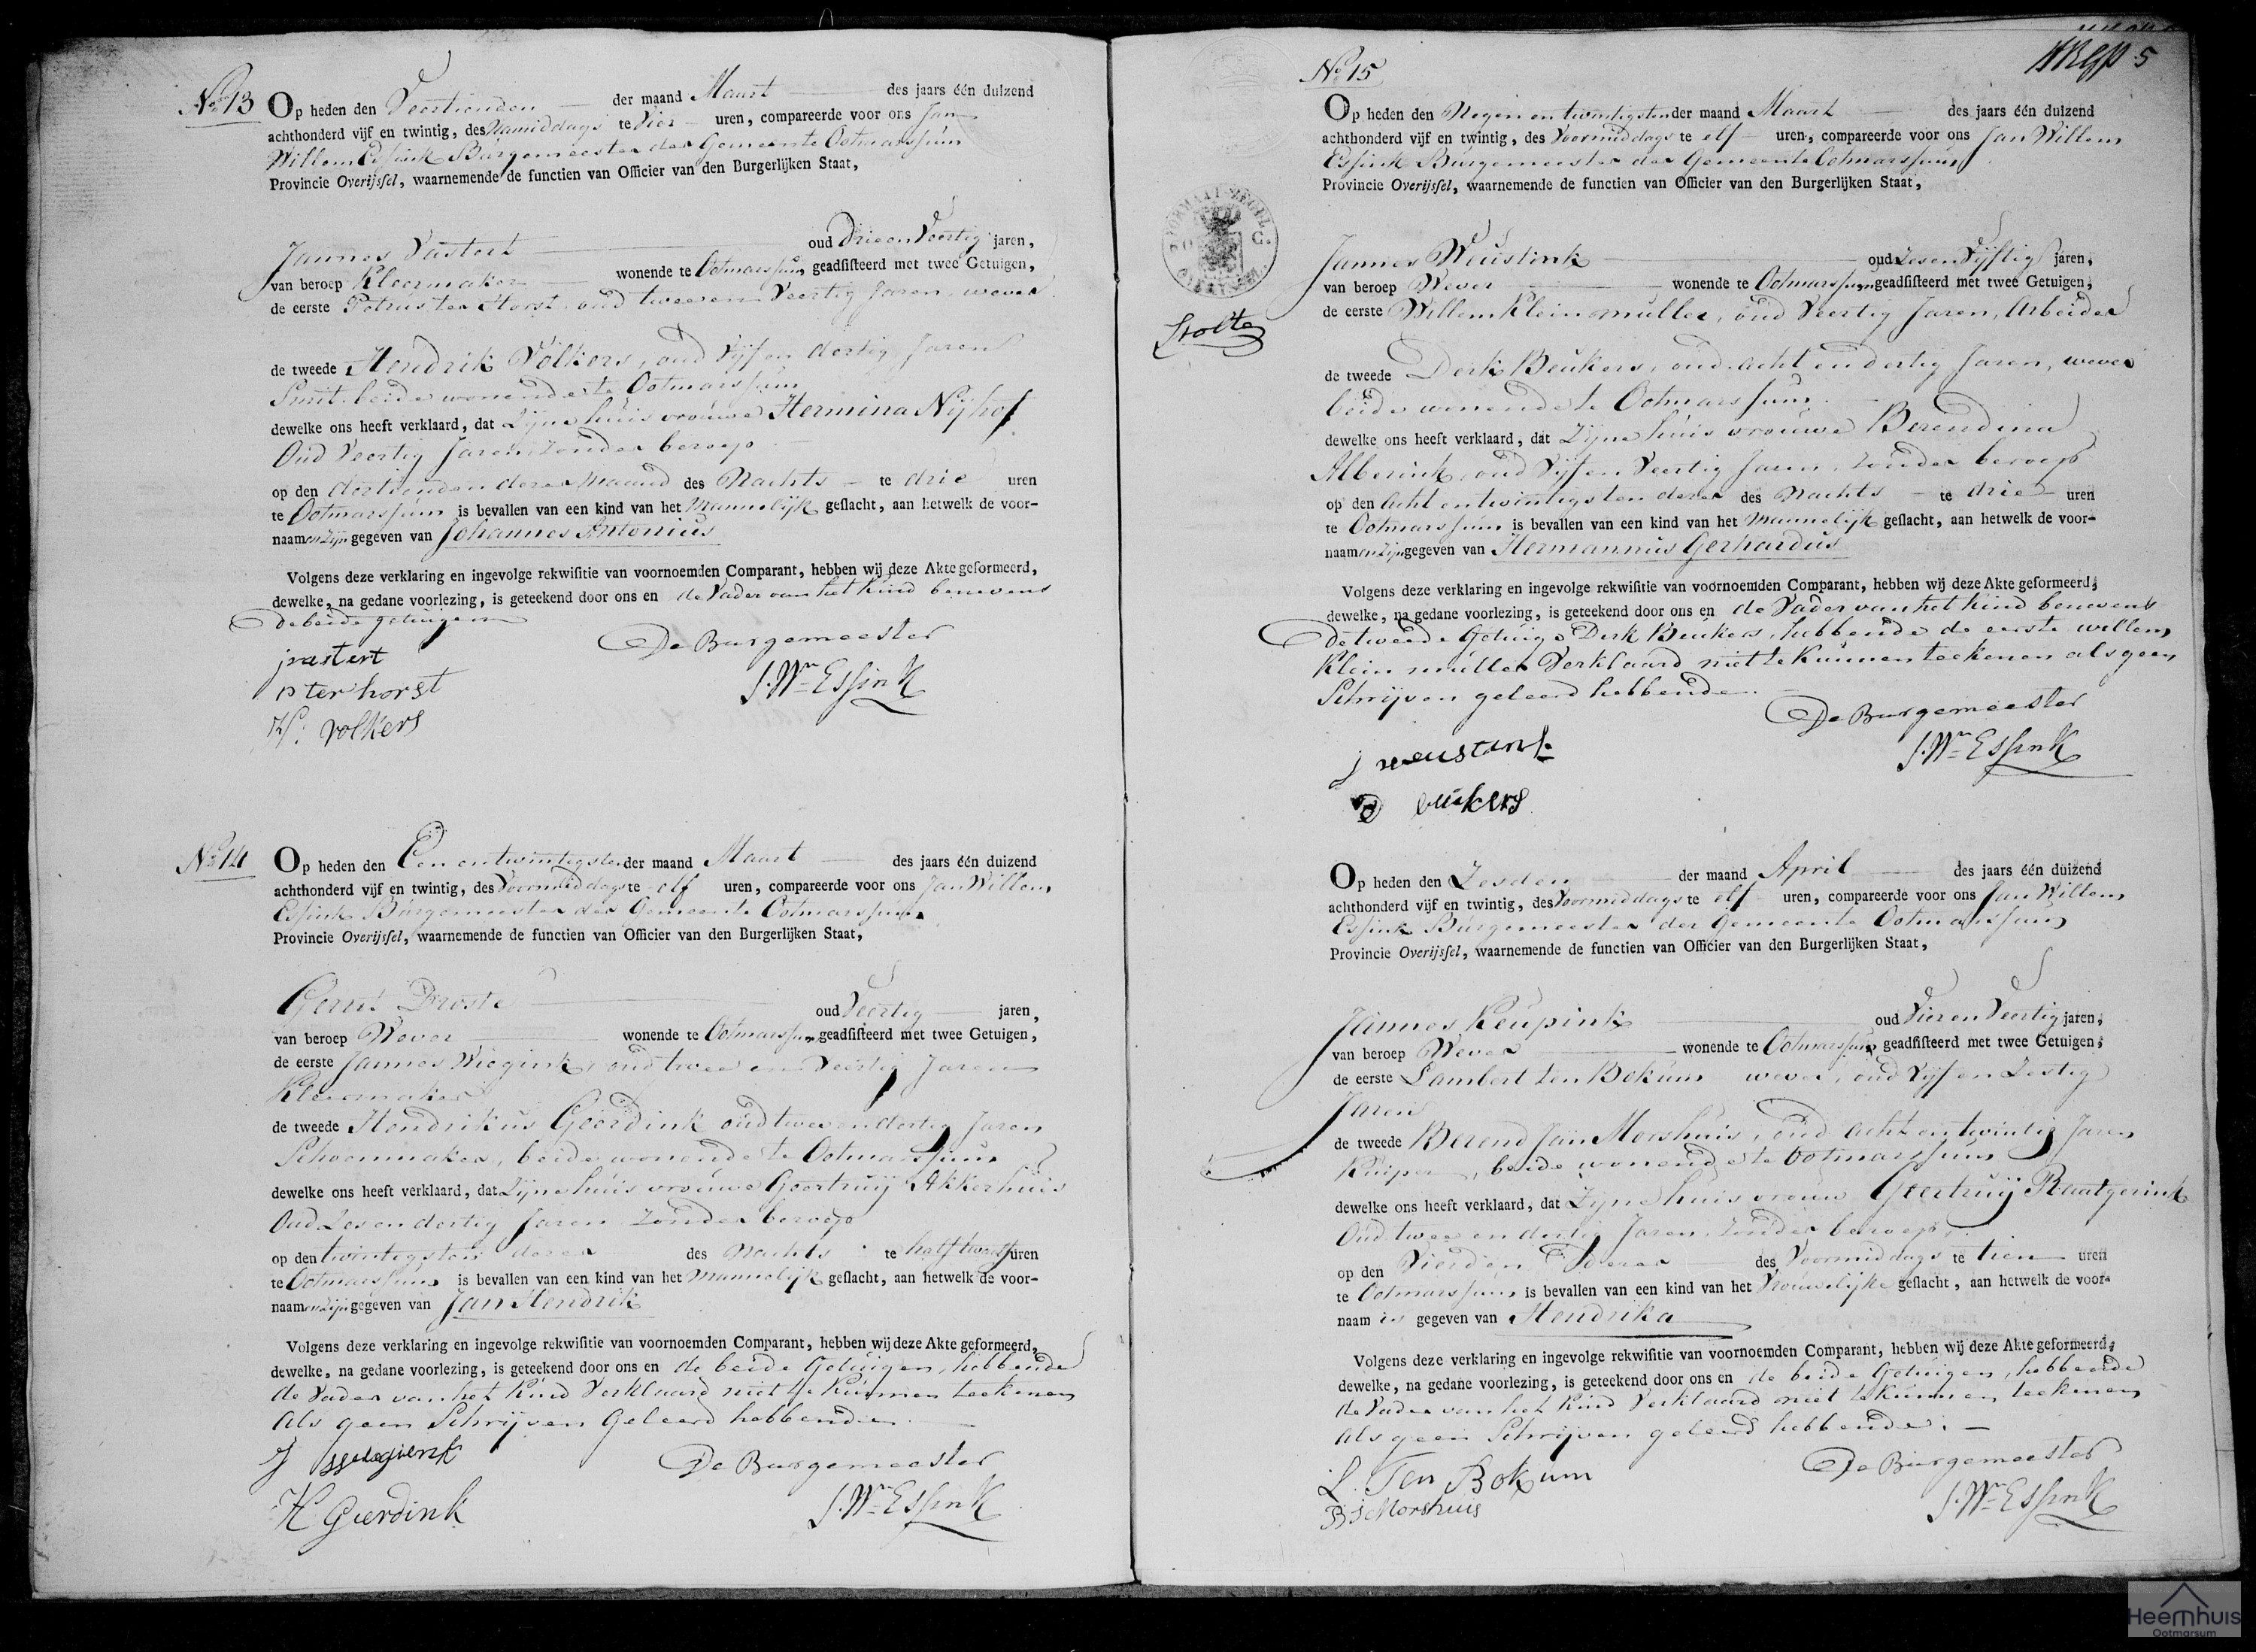 No 13 Op heden den Veertienden der maand Maart des jaars één duizend
achthonderd vijf en twintig, des Namiddags te Vier uren, compareerde voor ons Jan
Willem Essink Burgemeester der Gemeente Ootmarssum
Provincie Overijssel, waarnemende de functien van Officier van den Burgerlijken Staat,
Jannes Vastert oud Drie en Veertig jaren,
van beroep Kleermaker wonende te Ootmarssum geadsisteerd met twee Getuigen,
de eerste Petrus ter Horst, oud twee en Veertig Jaren, wever
de tweede Hendrik Volkers, oud Vijf en dertig Jaren
Smit, beide wonende te Ootmarssum
dewelke ons heeft verklaard, dat Zijne huisvrouwe Hermina Nijhof
Oud Veertig Jaren Zonder beroep
op den dertienden dezer Maand des Nachts te drie uren
te Ootmarssum is bevallen van een kind van het Mannelijk geslacht, aan hetwelk de voor-
naamen zijn gegeven van Johannes Antonius
Volgens deze verklaring en ingevolge rekwisitie van voornoemden Comparant, hebben wij deze Akte geformeerd,
dewelke, na gedane voorlezing, is geteekend door ons en de Vader van het Kind benevens
de beide getuigen
De Burgemeester
j vastert
p ter horst
J. Wm Essink
H: volkers
No 14 Op heden den Een en twintigsten der maand Maart des jaars één duizend
achthonderd vijf en twintig, des Voormiddags te elf uren, compareerde voor ons Jan Willem
Essink Burgemeester der Gemeente Ootmarssum
Provincie Overijssel, waarnemende de functien van Officier van den Burgerlijken Staat,
Gerrit Droste oud Veertig jaren,
van beroep Wever wonende te Ootmarssum geadsisteerd met twee Getuigen,
de eerste Jannes Wiegink, oud twee en Veertig Jaren
Kleermaker
de tweede Hendrikus Geerdink oud twee en dertig Jaren
Schoenmaker, beide wonende te Ootmarssum
dewelke ons heeft verklaard, dat Zijne huisvrouwe Geertruij Akkerhuis
Oud Zes en dertig Jaren Zonder beroep
op den twintigsten dezer des Nachts te half twaalf uren
te Ootmarssum is bevallen van een kind van het Mannelijk geslacht, aan hetwelk de voor-
naamen zijn gegeven van Jan Hendrik
Volgens deze verklaring en ingevolge rekwisitie van voornoemden Comparant, hebben wij deze Akte geformeerd,
dewelke, na gedane voorlezing, is geteekend door ons en de beide Getuigen, hebbende
de Vader van het Kind Verklaard niet te Kunnen teekenen
Als geen Schrijven Geleerd hebbende
De Burgemeester
H Gerdink
J. Wm Essink
No 15
5
Op heden den Negen en twintigsten der maand Maart des jaars één duizend
achthonderd vijf en twintig, des Voormiddags te elf uren, compareerde voor ons Jan Willem
Essink Burgemeester der Gemeente Ootmarssum
Provincie Overijssel, waarnemende de functien van Officier van den Burgerlijken Staat,
Jannes Weustink oud Zes en Vijftig jaren,
van beroep Wever wonende te Ootmarssum geadsisteerd met twee Getuigen,
de eerste Willem Kleinmuller, oud Veertig Jaren, Arbeider
Stolte
de tweede Derk Beukers, oud acht en dertig Jaren, wever
beide wonende te Ootmarssum
dewelke ons heeft verklaard, dat Zijne huisvrouwe Berendina
Alberink, oud Vijf en Veertig Jaren, Zonder beroep
op den Acht en twintigsten dezer des Nachts te drie uren
te Ootmarssum is bevallen van een kind van het Mannelijk geslacht, aan hetwelk de voor-
naamen zijn gegeven van Hermannus Gerhardus
Volgens deze verklaring en ingevolge rekwisitie van voornoemden Comparant, hebben wij deze Akte geformeerd,
dewelke, na gedane voorlezing, is geteekend door ons en de Vader van het Kind benevens
De tweede Getuige Derk Beukers, hebbende de eerste willem
Klein muller Verklaard niet te Kunnen teekenen als geen
Schrijven geleerd hebbende.
De Burgemeester
J. Wm Essink
D beukers
Op heden den Zesden der maand April des jaars één duizend
achthonderd vijf en twintig, des Voormiddags te elf uren, compareerde voor ons Jan Willem
Essink Burgemeester der Gemeente Ootmarssum
Provincie Overijssel, waarnemende de functien van Officier van den Burgerlijken Staat,
Jannes Keupink oud Vier en Veertig jaren,
van beroep Wever wonende te Ootmarssum geadsisteerd met twee Getuigen,
de eerste Lambert ten Bokum wever, oud Vijf en Zestig
Jaren
de tweede Berend Jan Morshuis, oud Acht en twintig Jaren
Kuiper, beide wonende te Ootmarssum
dewelke ons heeft verklaard, dat Zijne huisvrouw Geertruij Raatgerink
Oud twee en dertig Jaren, Zonder beroep,
op den Vierden Dezer des Voormiddags te tien uren
te Ootmarssum is bevallen van een kind van het Vrouwelijke geslacht, aan hetwelk de voor-
naam is gegeven van Hendrika
Volgens deze verklaring en ingevolge rekwisitie van voornoemden Comparant, hebben wij deze Akte geformeerd,
dewelke, na gedane voorlezing, is geteekend door ons en de beide Getuigen, hebbende
de Vader van het Kind Verklaard niet te Kunnen teekenen
Als geen Schrijven geleerd hebbende.
De Burgemeester
L. Ten Bokum
B J Morshuis
J. Wm Essink
Heemhuis
Ootmarsum